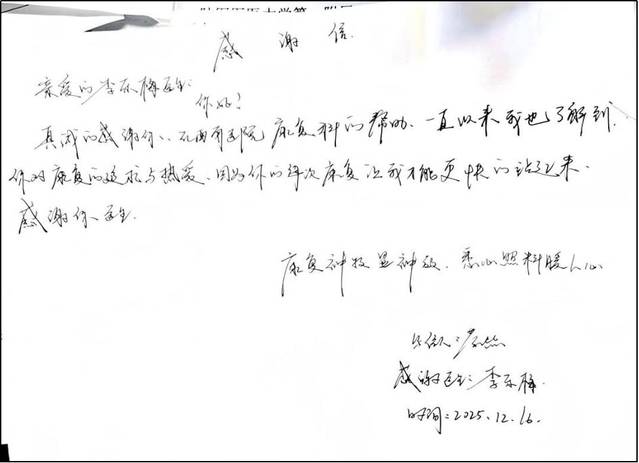 感谢信
亲爱的李乐梅医生:
你好!
真诚的感谢你、康复科的帮助、一直以来我也了解到
你对康复的追求与热爱、因为你的每次康复让我才能更快的站起来
感谢你医生
康复神技显神效、悉心照料暖人心
感谢医生:李乐梅
时间:2025.12.16.